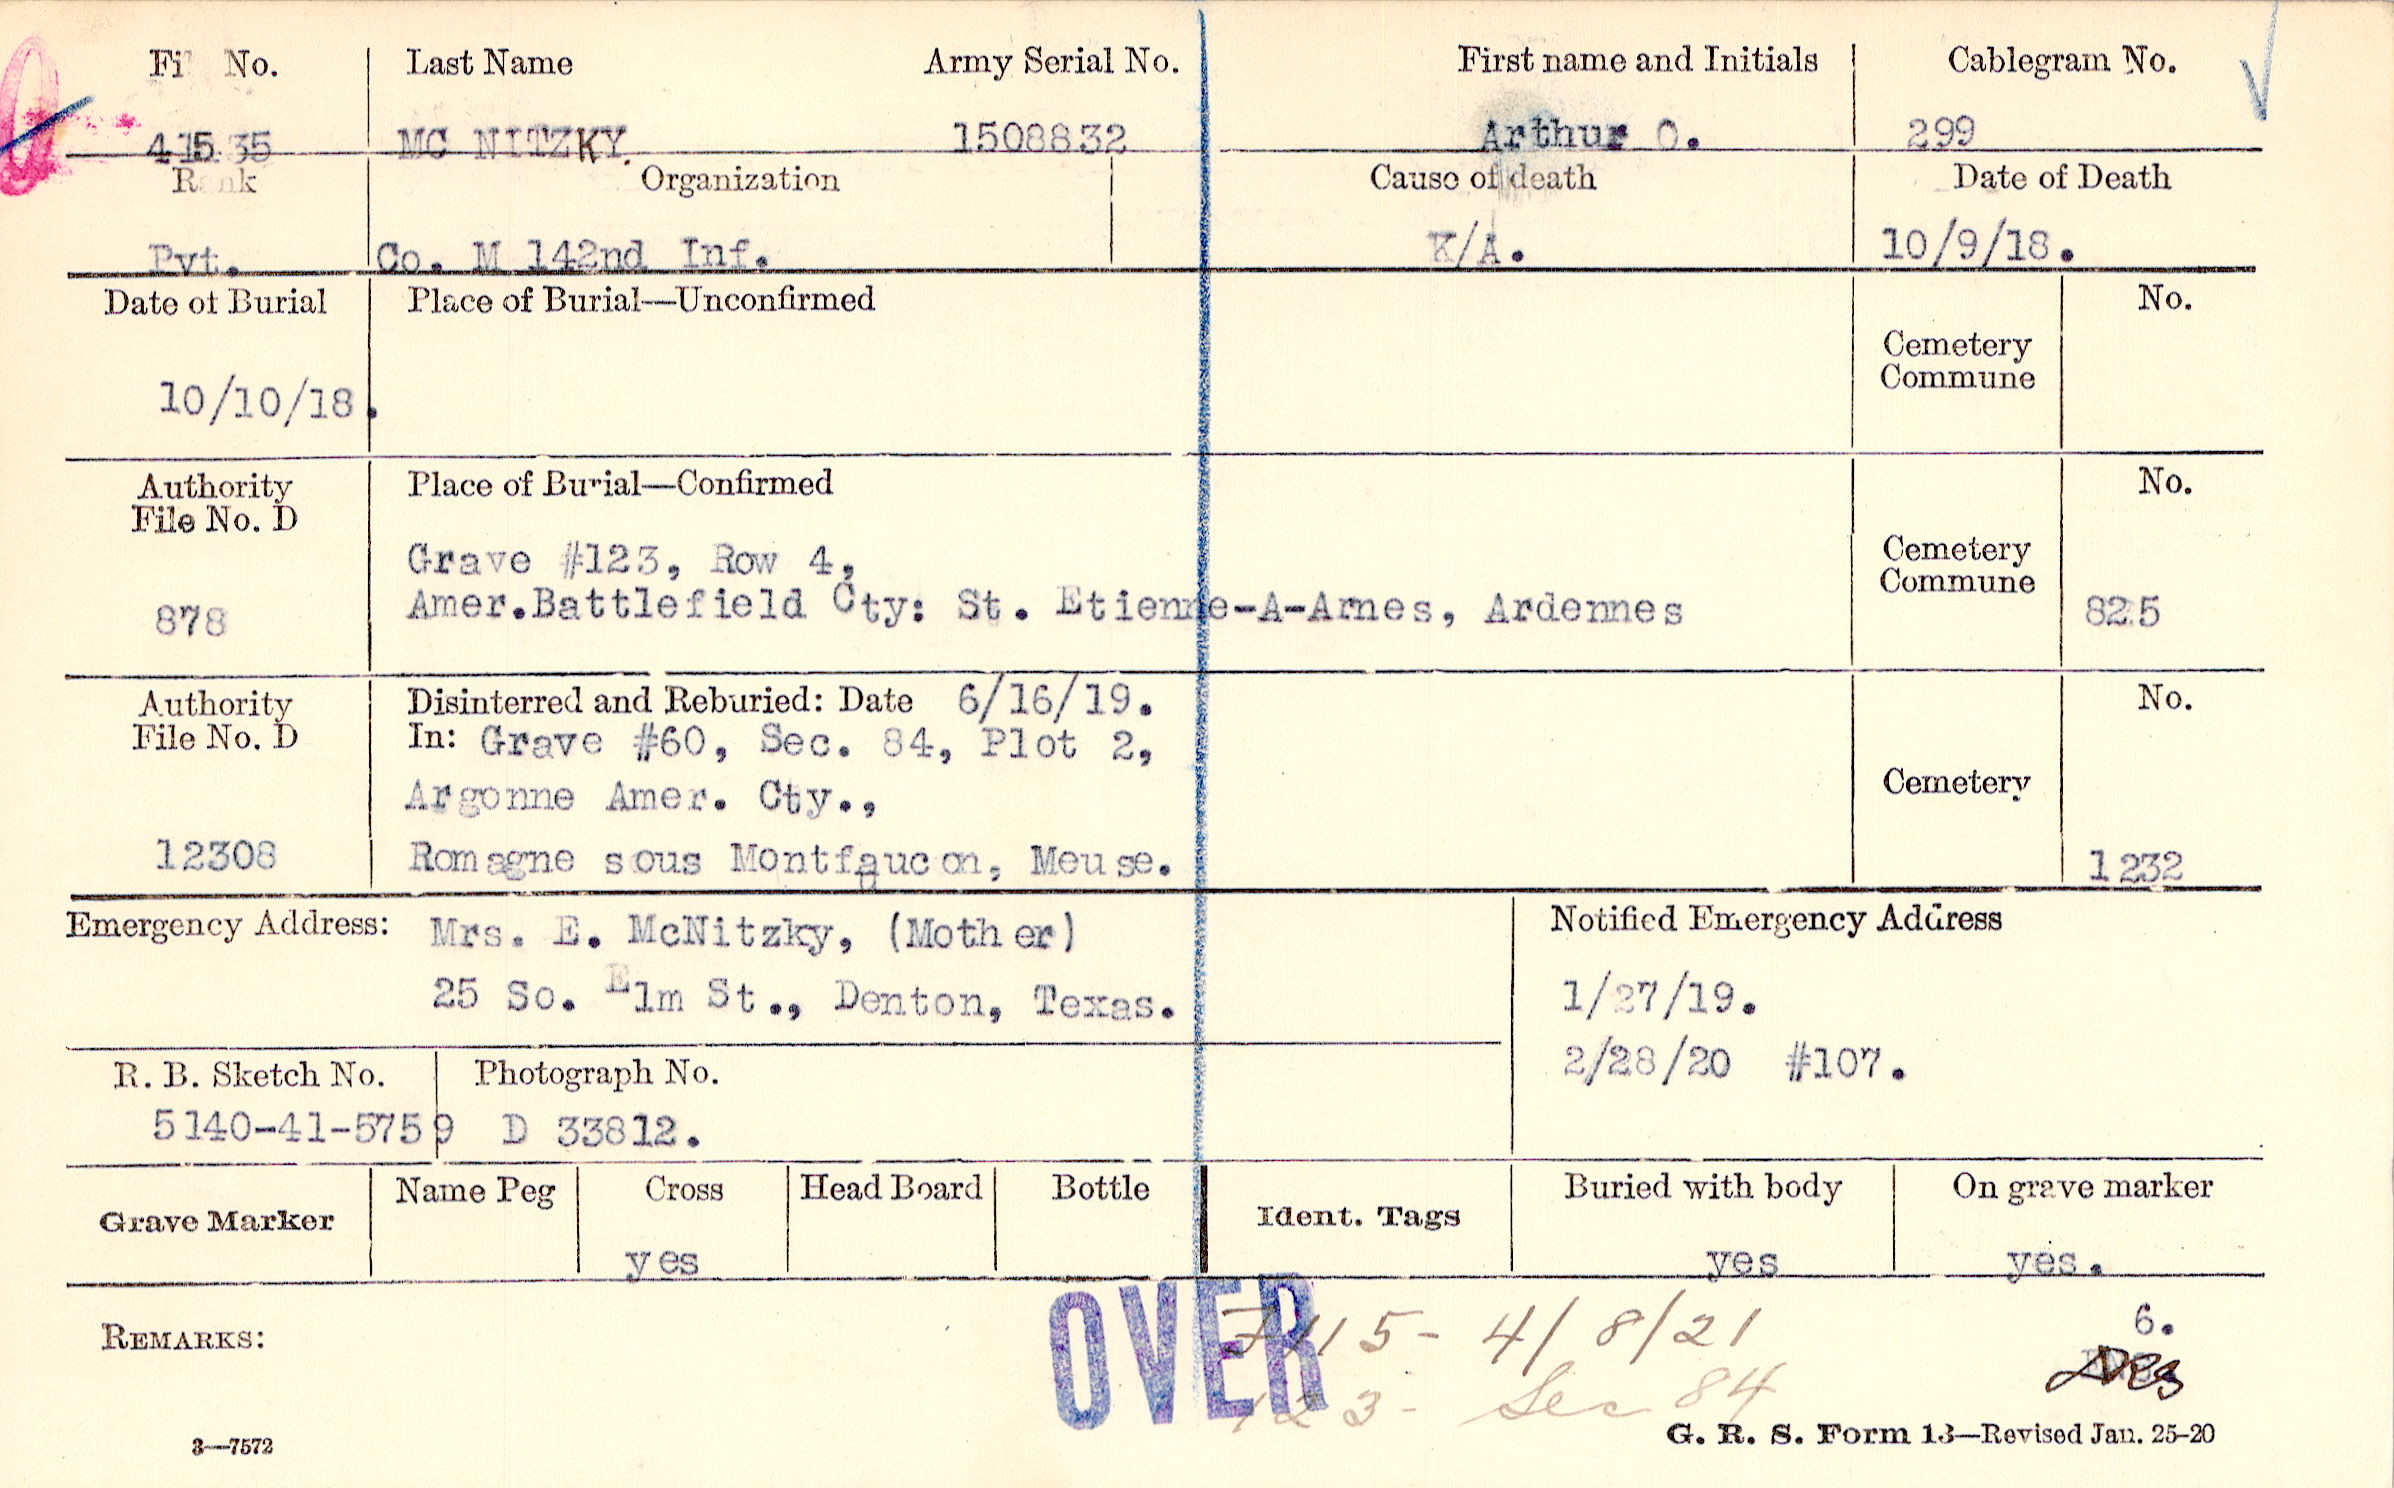 No. Last Name Army Serial No. First name and Initials Cablegram No.
MC NITZKY. 1508832 Arthur O. 299
Rank Organization Cause of death Date of Death
Pvt. Co. M 142nd Inf. K/A. 10/9/18.
Date of Burial Place of Burial—Unconfirmed No.
Cemetery
Commune
10/10/18.
Authority Place of Burial—Confirmed No.
File No. D
Grave #123, Row 4, Cemetery
Commune
878 Amer.Battlefield Cty: St. Etienne-A-Arnes, Ardennes 825
Authority Disinterred and Reburied: Date 6/16/19. No.
File No. D In: Grave #60, Sec. 84, Plot 2,
Argonne Amer. Cty., Cemetery
12308 Romagne sous Montfaucon, Meuse. 1232
Emergency Address: Mrs. E. McNitzky, (Mother) Notified Emergency Address
25 So. Elm St., Denton, Texas. 1/27/19.
2/28/20 #107.
R. B. Sketch No. Photograph No.
5140-41-5759 D 33812.
Grave Marker Name Peg Cross Head Board Bottle Ident. Tags Buried with body On grave marker
yes yes yes.
OVER 4/8/21 6.
REMARKS:
123- Sec 84
3—7572 G. R. S. Form 13—Revised Jan. 25-20